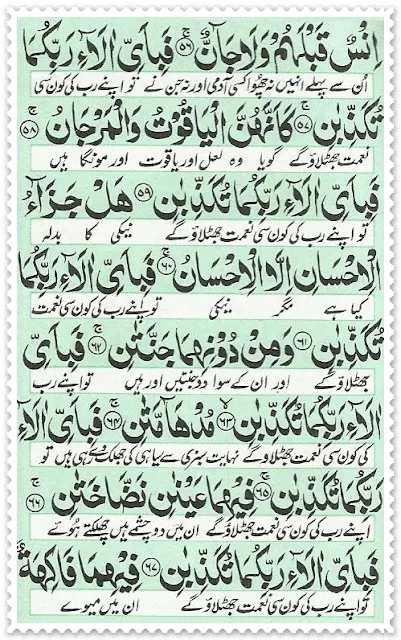 اِنْسٌ قَبْلَهُمْ وَلَا جَآنٌّ ﴿۵۶﴾ ج فَبِاَیِّ اٰلَآءِ رَبِّكُمَا
اُن سے پہلے انہیں نہ چھوا کسی آدمی اور نہ جن نے تو اپنے رب کی کون سی
تُكَذِّبٰنِ ﴿۵۷﴾ ج كَاَنَّهُنَّ الْیَاقُوْتُ وَالْمَرْجَانُ ﴿۵۸﴾ ج
نعمت جھٹلاؤ گے گویا وہ لعل اور یاقوت اور مونگا ہیں
فَبِاَیِّ اٰلَآءِ رَبِّكُمَا تُكَذِّبٰنِ ﴿۵۹﴾ هَلْ جَزَآءُ
تو اپنے رب کی کون سی نعمت جھٹلاؤ گے نیکی کا بدلہ
الْاِحْسَانِ اِلَّا الْاِحْسَانُ ﴿۶۰﴾ ج فَبِاَیِّ اٰلَآءِ رَبِّكُمَا
کیا ہے مگر نیکی تو اپنے رب کی کون سی نعمت
تُكَذِّبٰنِ ﴿۶۱﴾ وَمِنْ دُوْنِهِمَا جَنَّتٰنِ ﴿۶۲﴾ ج فَبِاَیِّ
جھٹلاؤ گے اور ان کے سوا دو جنتیں اور ہیں تو اپنے رب
اٰلَآءِ رَبِّكُمَا تُكَذِّبٰنِ ﴿۶۳﴾ لا مُدْهَآمَّتٰنِ ﴿۶۴﴾ ج فَبِاَیِّ اٰلَآءِ
کی کون سی نعمت جھٹلاؤ گے نہایت سبزی سے سیاہی کی جھلک دے رہی ہیں تو
رَبِّكُمَا تُكَذِّبٰنِ ﴿۶۵﴾ ج فِیْهِمَا عَیْنٰنِ نَضَّاخَتٰنِ ﴿۶۶﴾ ج
اپنے رب کی کون سی نعمت جھٹلاؤ گے ان میں دو چشمے ہیں چھلکتے ہوئے
فَبِاَیِّ اٰلَآءِ رَبِّكُمَا تُكَذِّبٰنِ ﴿۶۷﴾ فِیْهِمَا فَاكِهَةٌ
تو اپنے رب کی کون سی نعمت جھٹلاؤ گے ان میں میوے